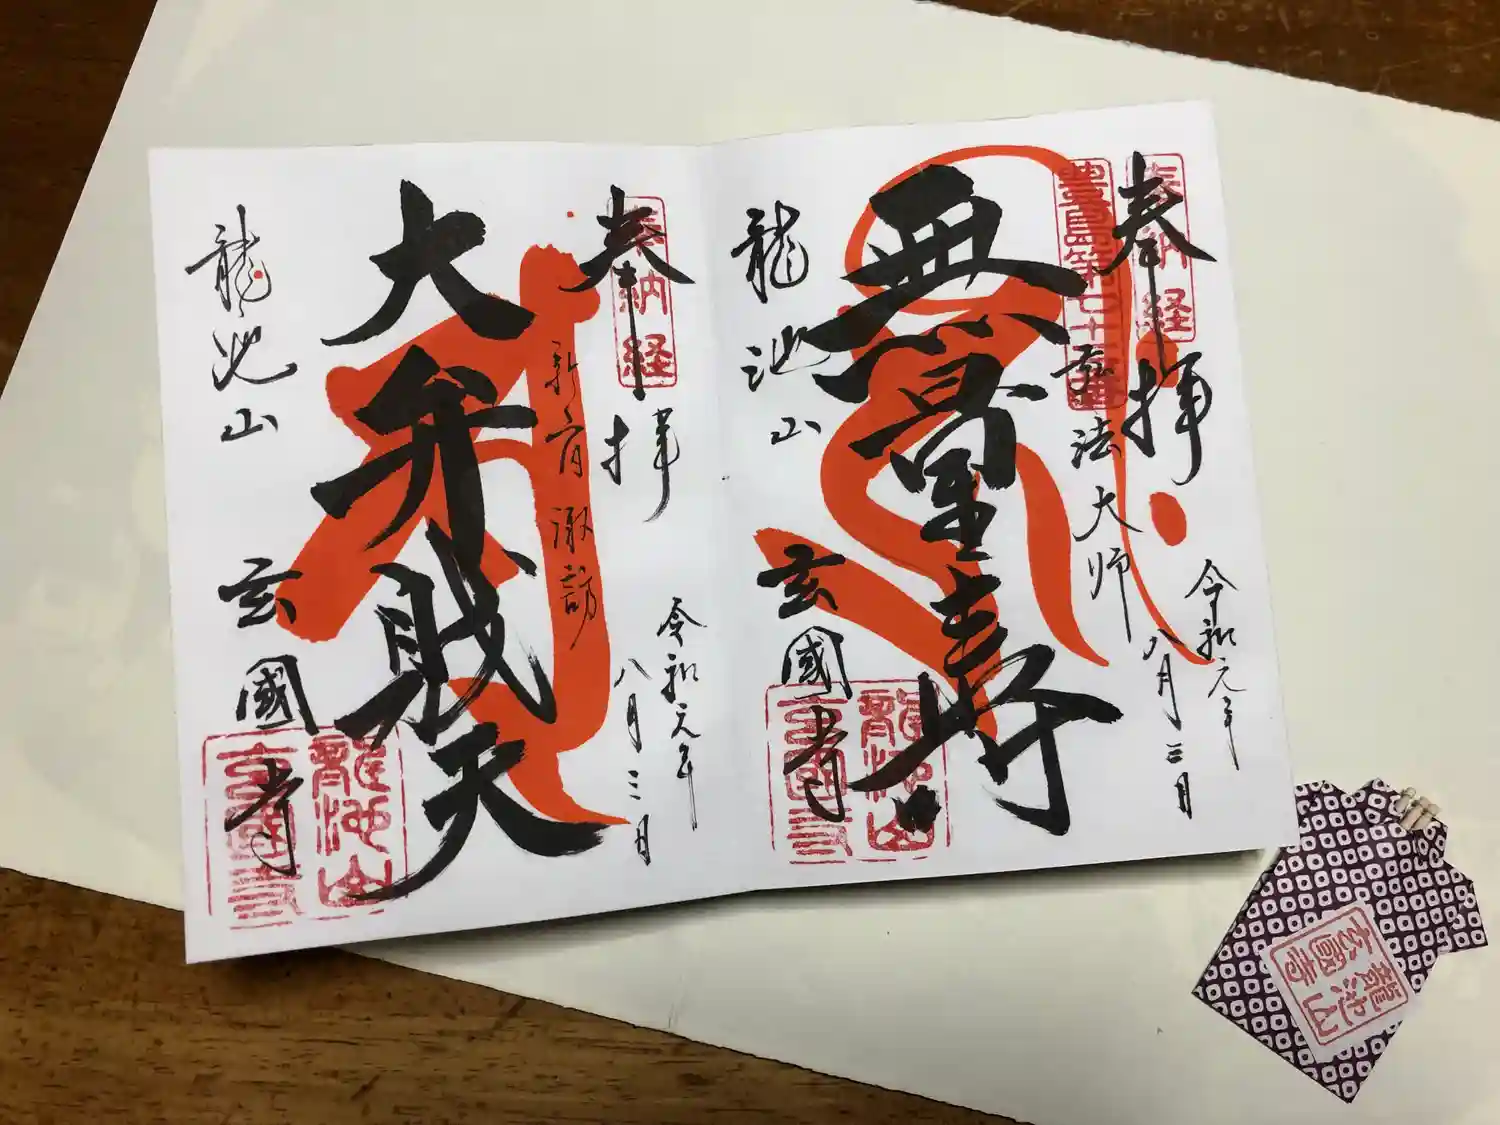 奉拝
奉納経
令和元年
八月三日
豊島第七十五番
弘法大師
無量寿
龍池山
玄國寺
龍池山
玄國寺
奉拝
奉納経
令和元年
八月三日
新宿諏訪
大弁財天
龍池山
玄國寺
龍池山
玄國寺
龍池山
玄國寺